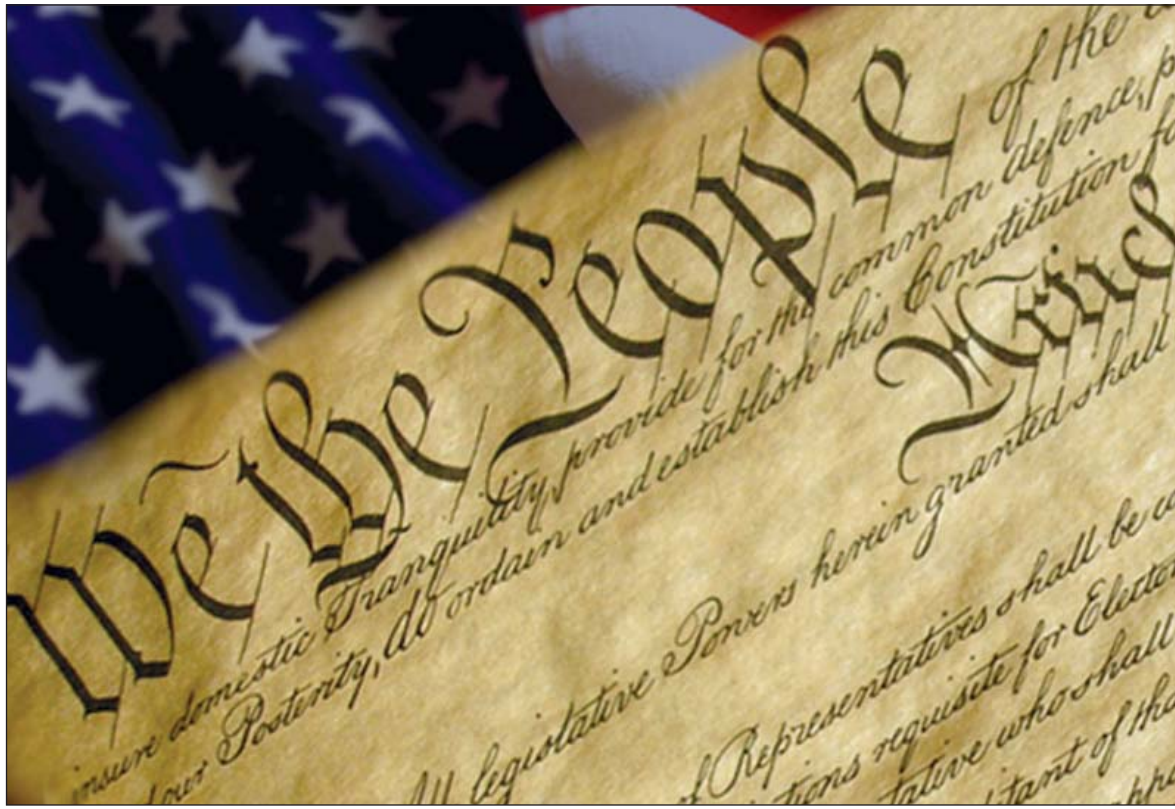 We the People of the
insure domestic Tranquility, provide for the common defence, p
our Posterity, do ordain and establish this Constitution fo
Articl
All legislative Powers herein granted shall
of Representatives shall be c
tions requisite for Elector
tative who shall
itant of tha